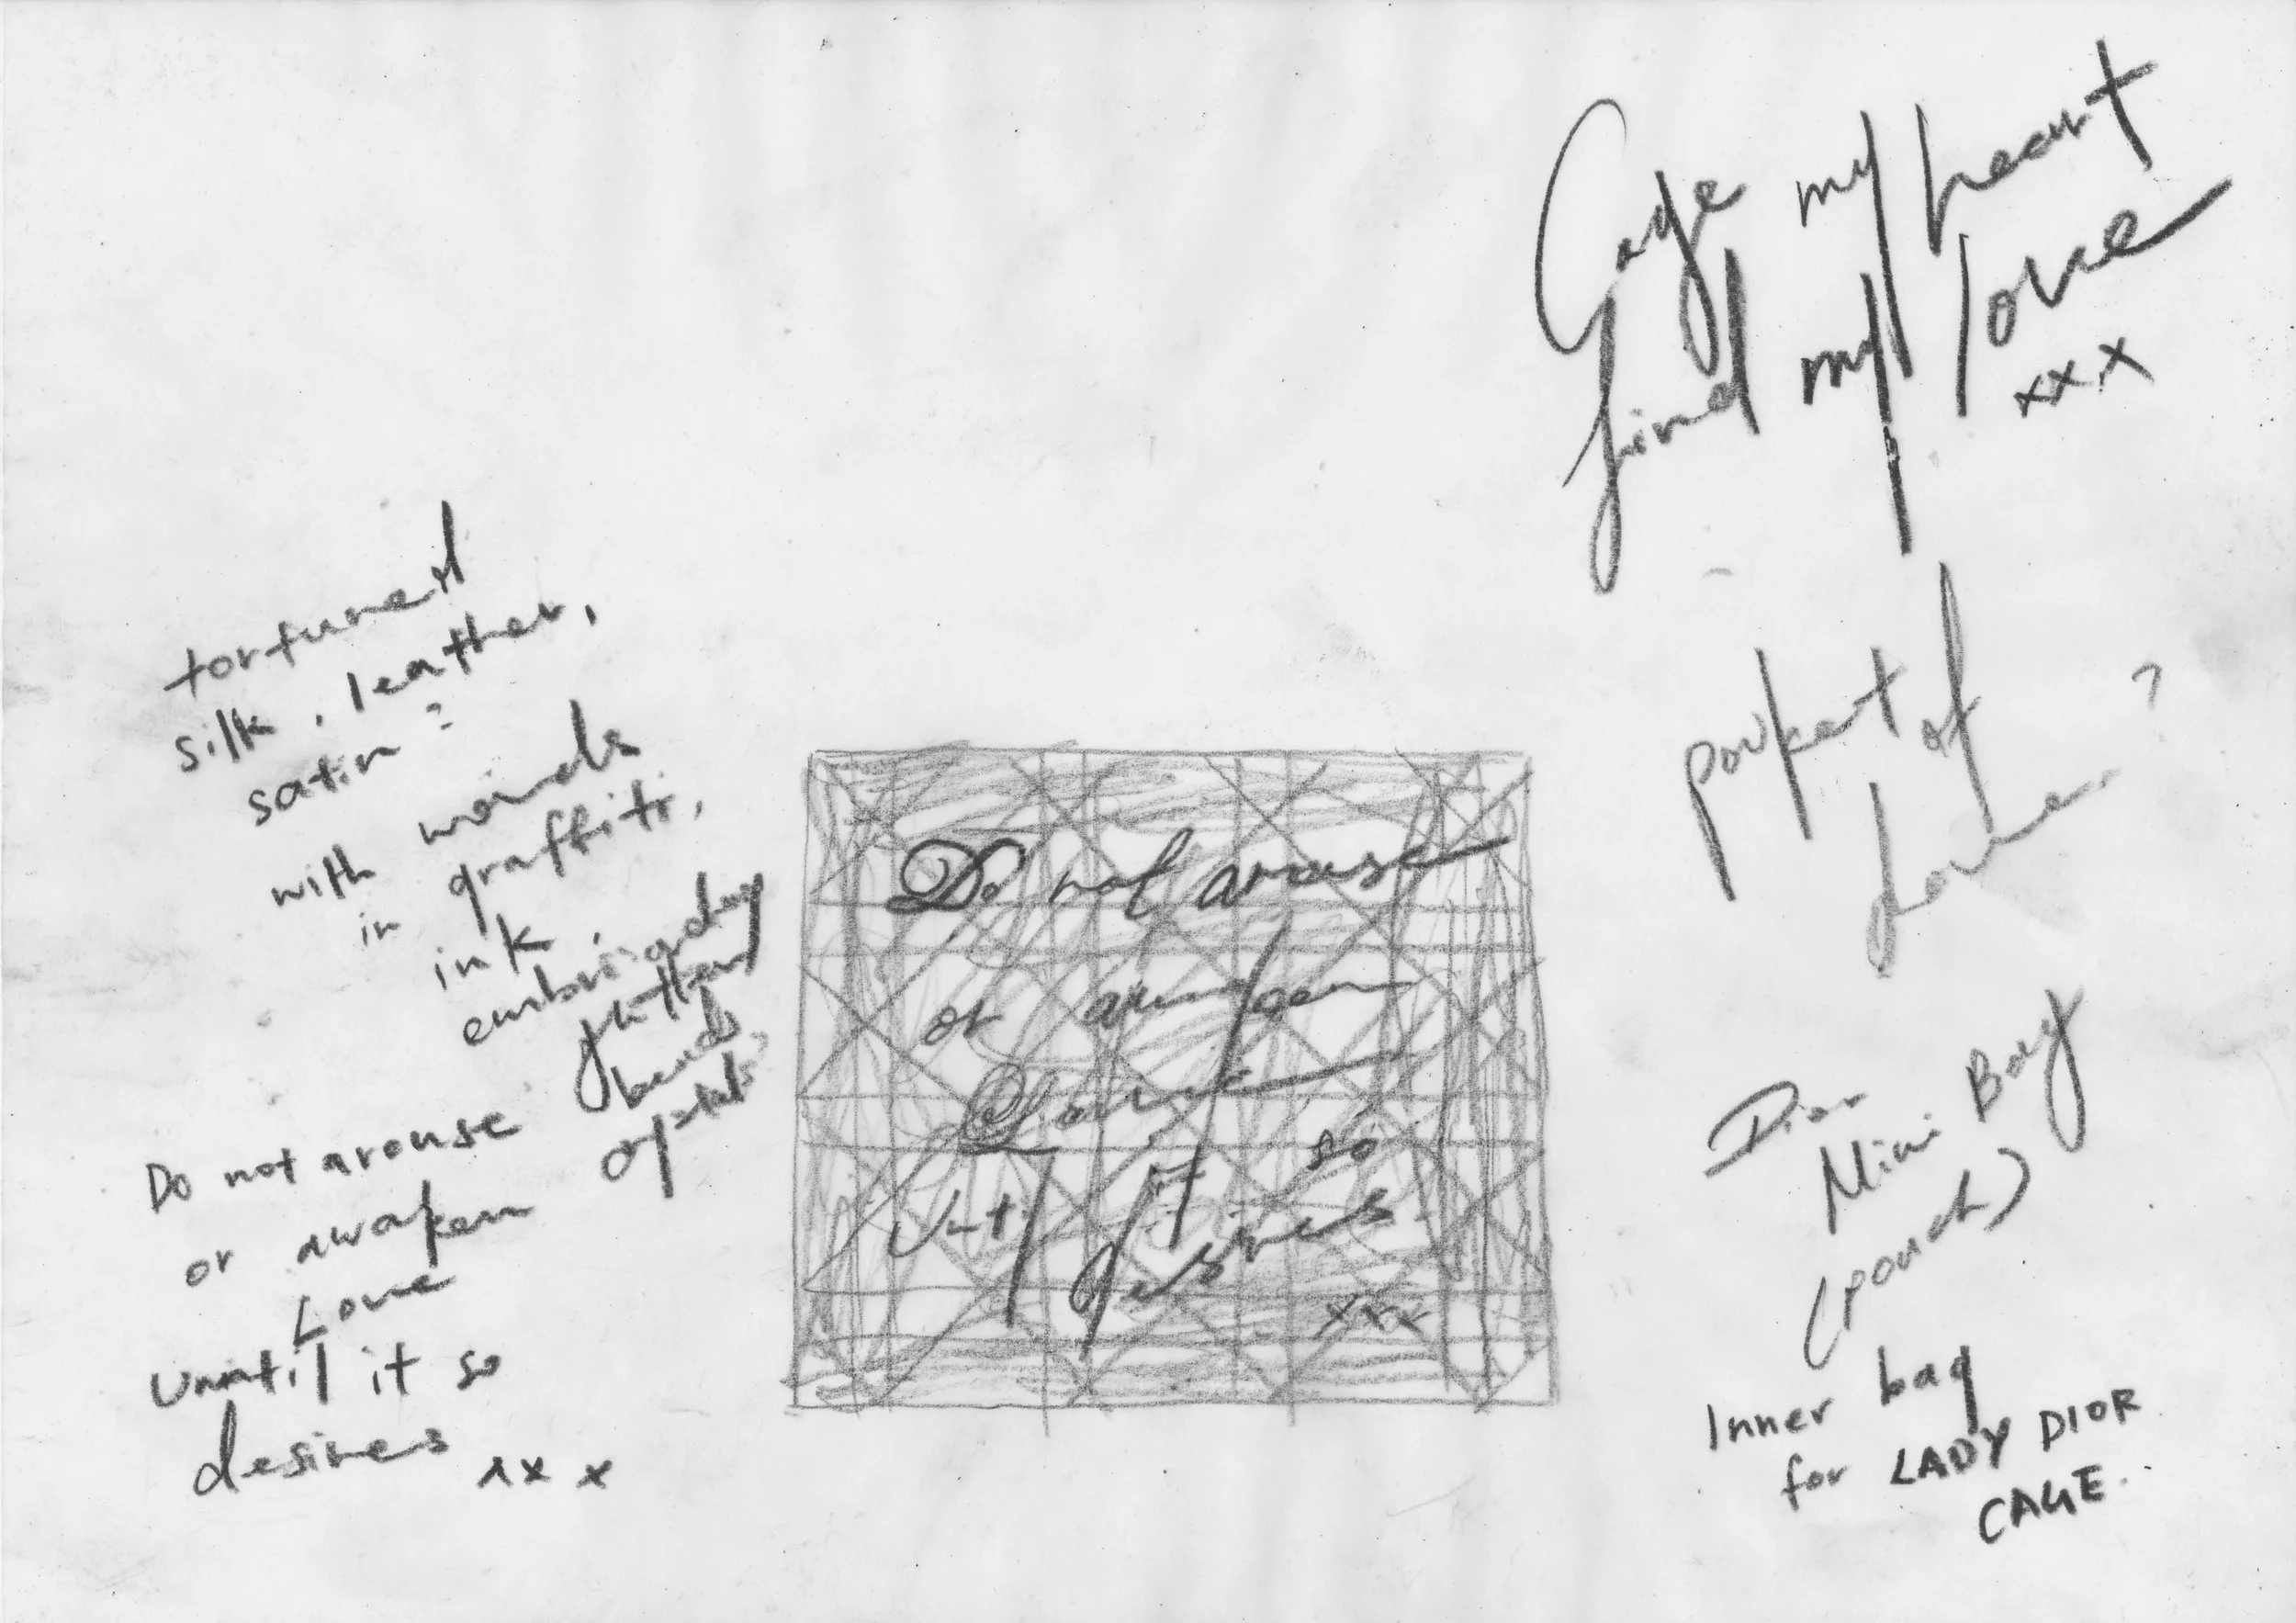 Cage my heart
find my love
xxx
pocket of
Love ?
tortured
silk, leather,
satin ?
with words
in graffiti,
ink,
embroidery
beads
Do not arouse
or awaken
Love
Until it so
desires xxx
Do not arouse
or awaken
Love
Until it so
desires
xxx
Dior
Mini Bag
(pouch)
Inner bag
for LADY DIOR
CAGE.